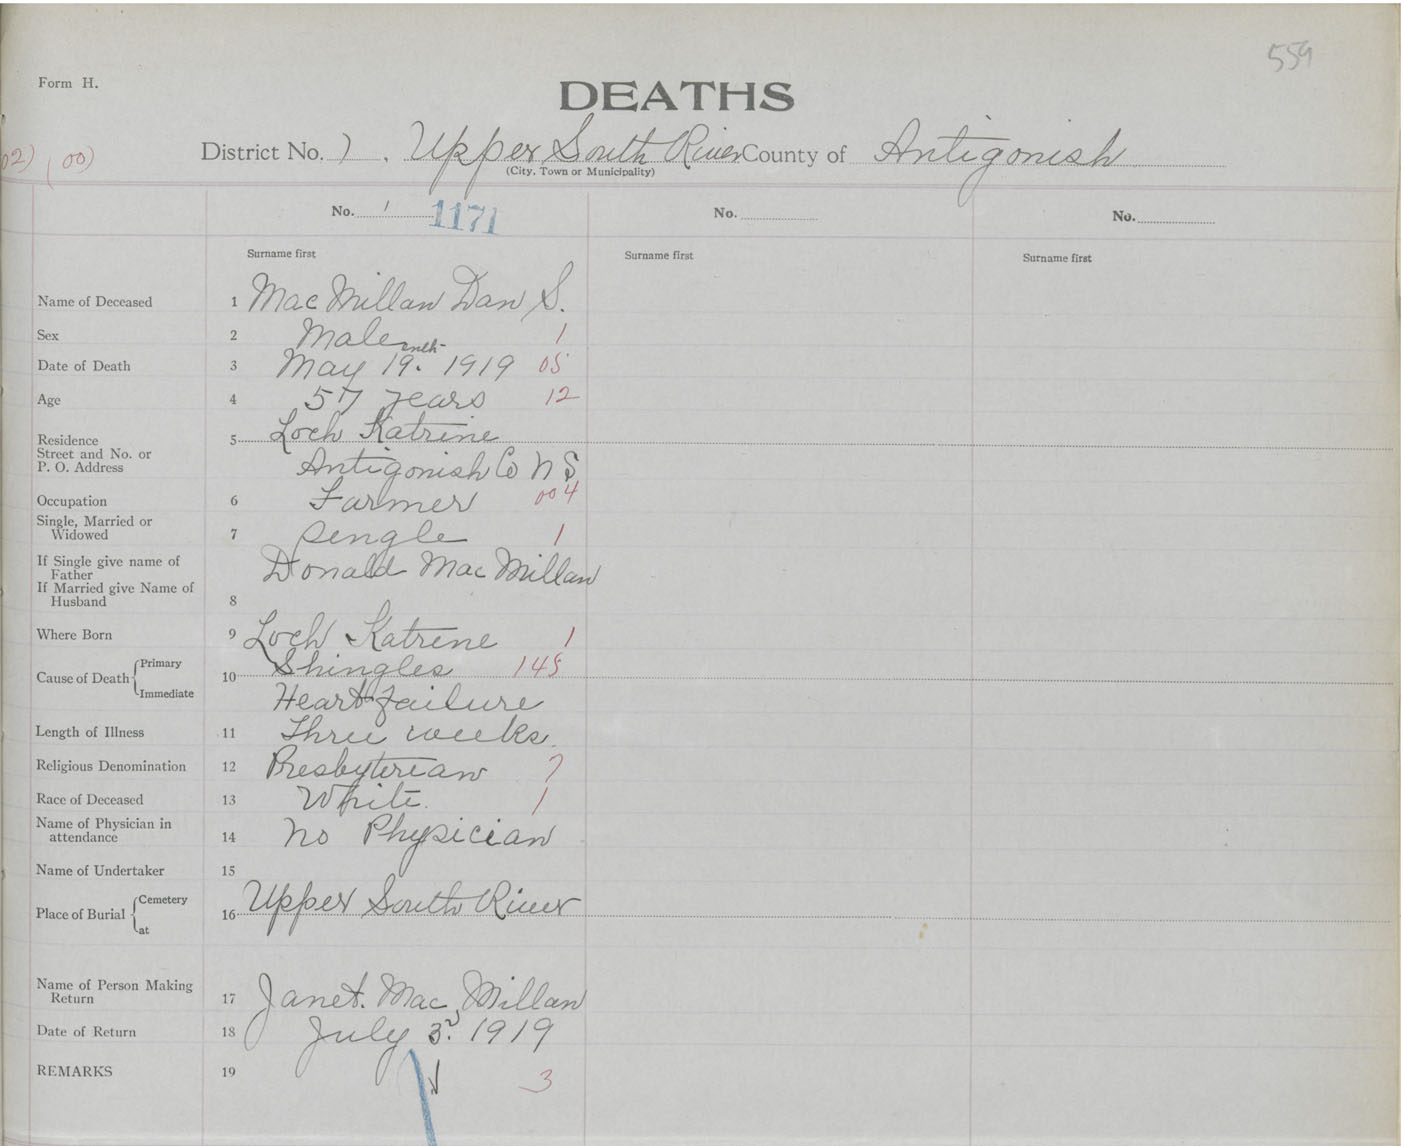 559
Form H.
DEATHS
02) (00)
District No. 7. Upper South River County of Antigonish
(City, Town or Municipality)
No. 1 1171 No. No.
Surname first Surname first Surname first
Name of Deceased 1 Mac Millan Dan S.
Sex 2 Male 1
Date of Death 3 May 19. 1919 05
Age 4 57 years 12
Residence 5 Loch Katrine
Street and No. or
P. O. Address Antigonish Co N S
Occupation 6 Farmer 004
Single, Married or
Widowed 7 Single 1
If Single give name of
Father Donald Mac Millan
If Married give Name of
Husband 8
Where Born 9 Loch Katrine 1
Cause of Death Primary 10 Shingles 145
Immediate Heart failure
Length of Illness 11 Three weeks
Religious Denomination 12 Presbyterian 7
Race of Deceased 13 White. 1
Name of Physician in
attendance 14 No Physician
Name of Undertaker 15
Place of Burial Cemetery 16 Upper South River
at
Name of Person Making
Return 17 Janet. Mac Millan
Date of Return 18 July 3. 1919
REMARKS 19 3